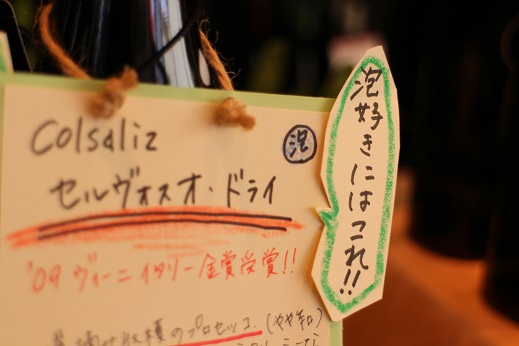 Colsaliz
泡
セルヴォスオ・ドライ
'09 ヴィーニイタリー金賞受賞!!
収穫のプロセッコ.(やや辛口)
泡好きにはこれ!!